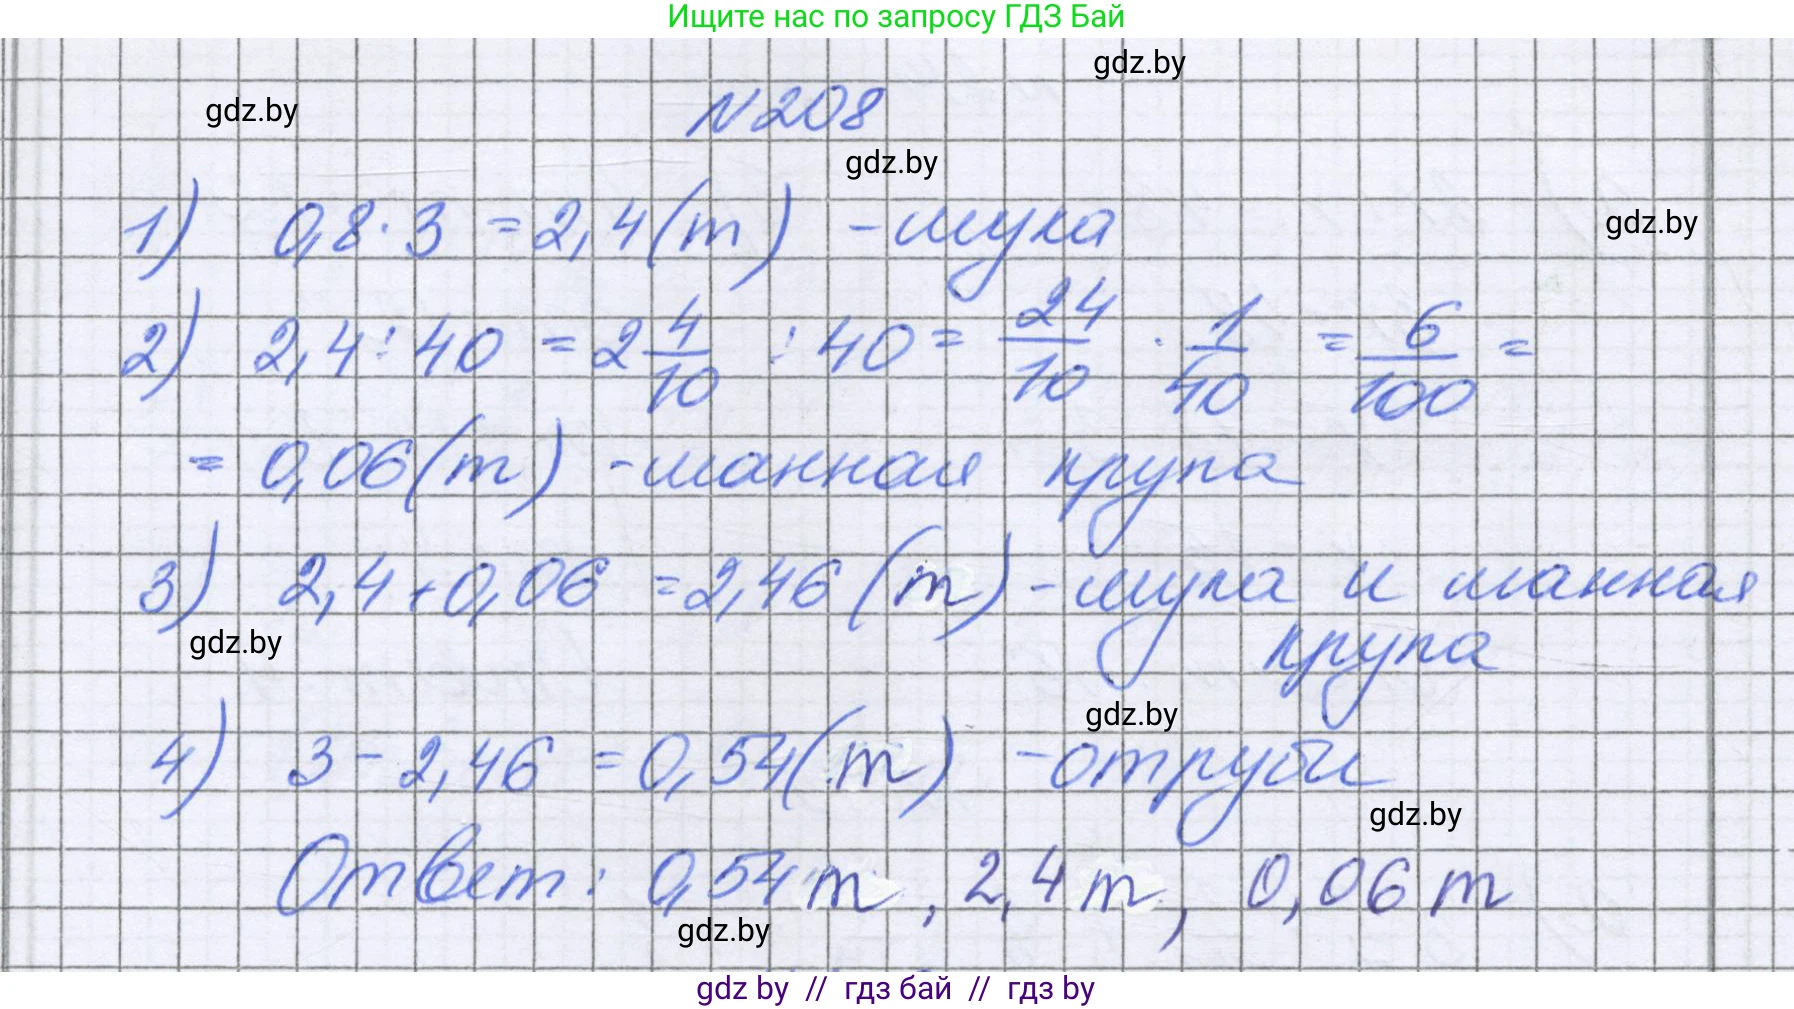 Ищите нас по запросу ГДЗ Бай
gdz.by
gdz.by
N208
gdz.by
1) 0,8·3=2,4(т) -мука
gdz.by
2) 2,4:40=2 4/10 :40= 24/10 · 1/40 = 6/100 =
=0,06(т) -манная крупа
3) 2,4+0,06=2,46(т)-мука и манная
gdz.by
крупа
gdz.by
4) 3-2,46=0,54(т) -отруби
gdz.by
Ответ: 0,54т, 2,4т, 0,06т
gdz.by
gdz by // гдз бай // гдз by